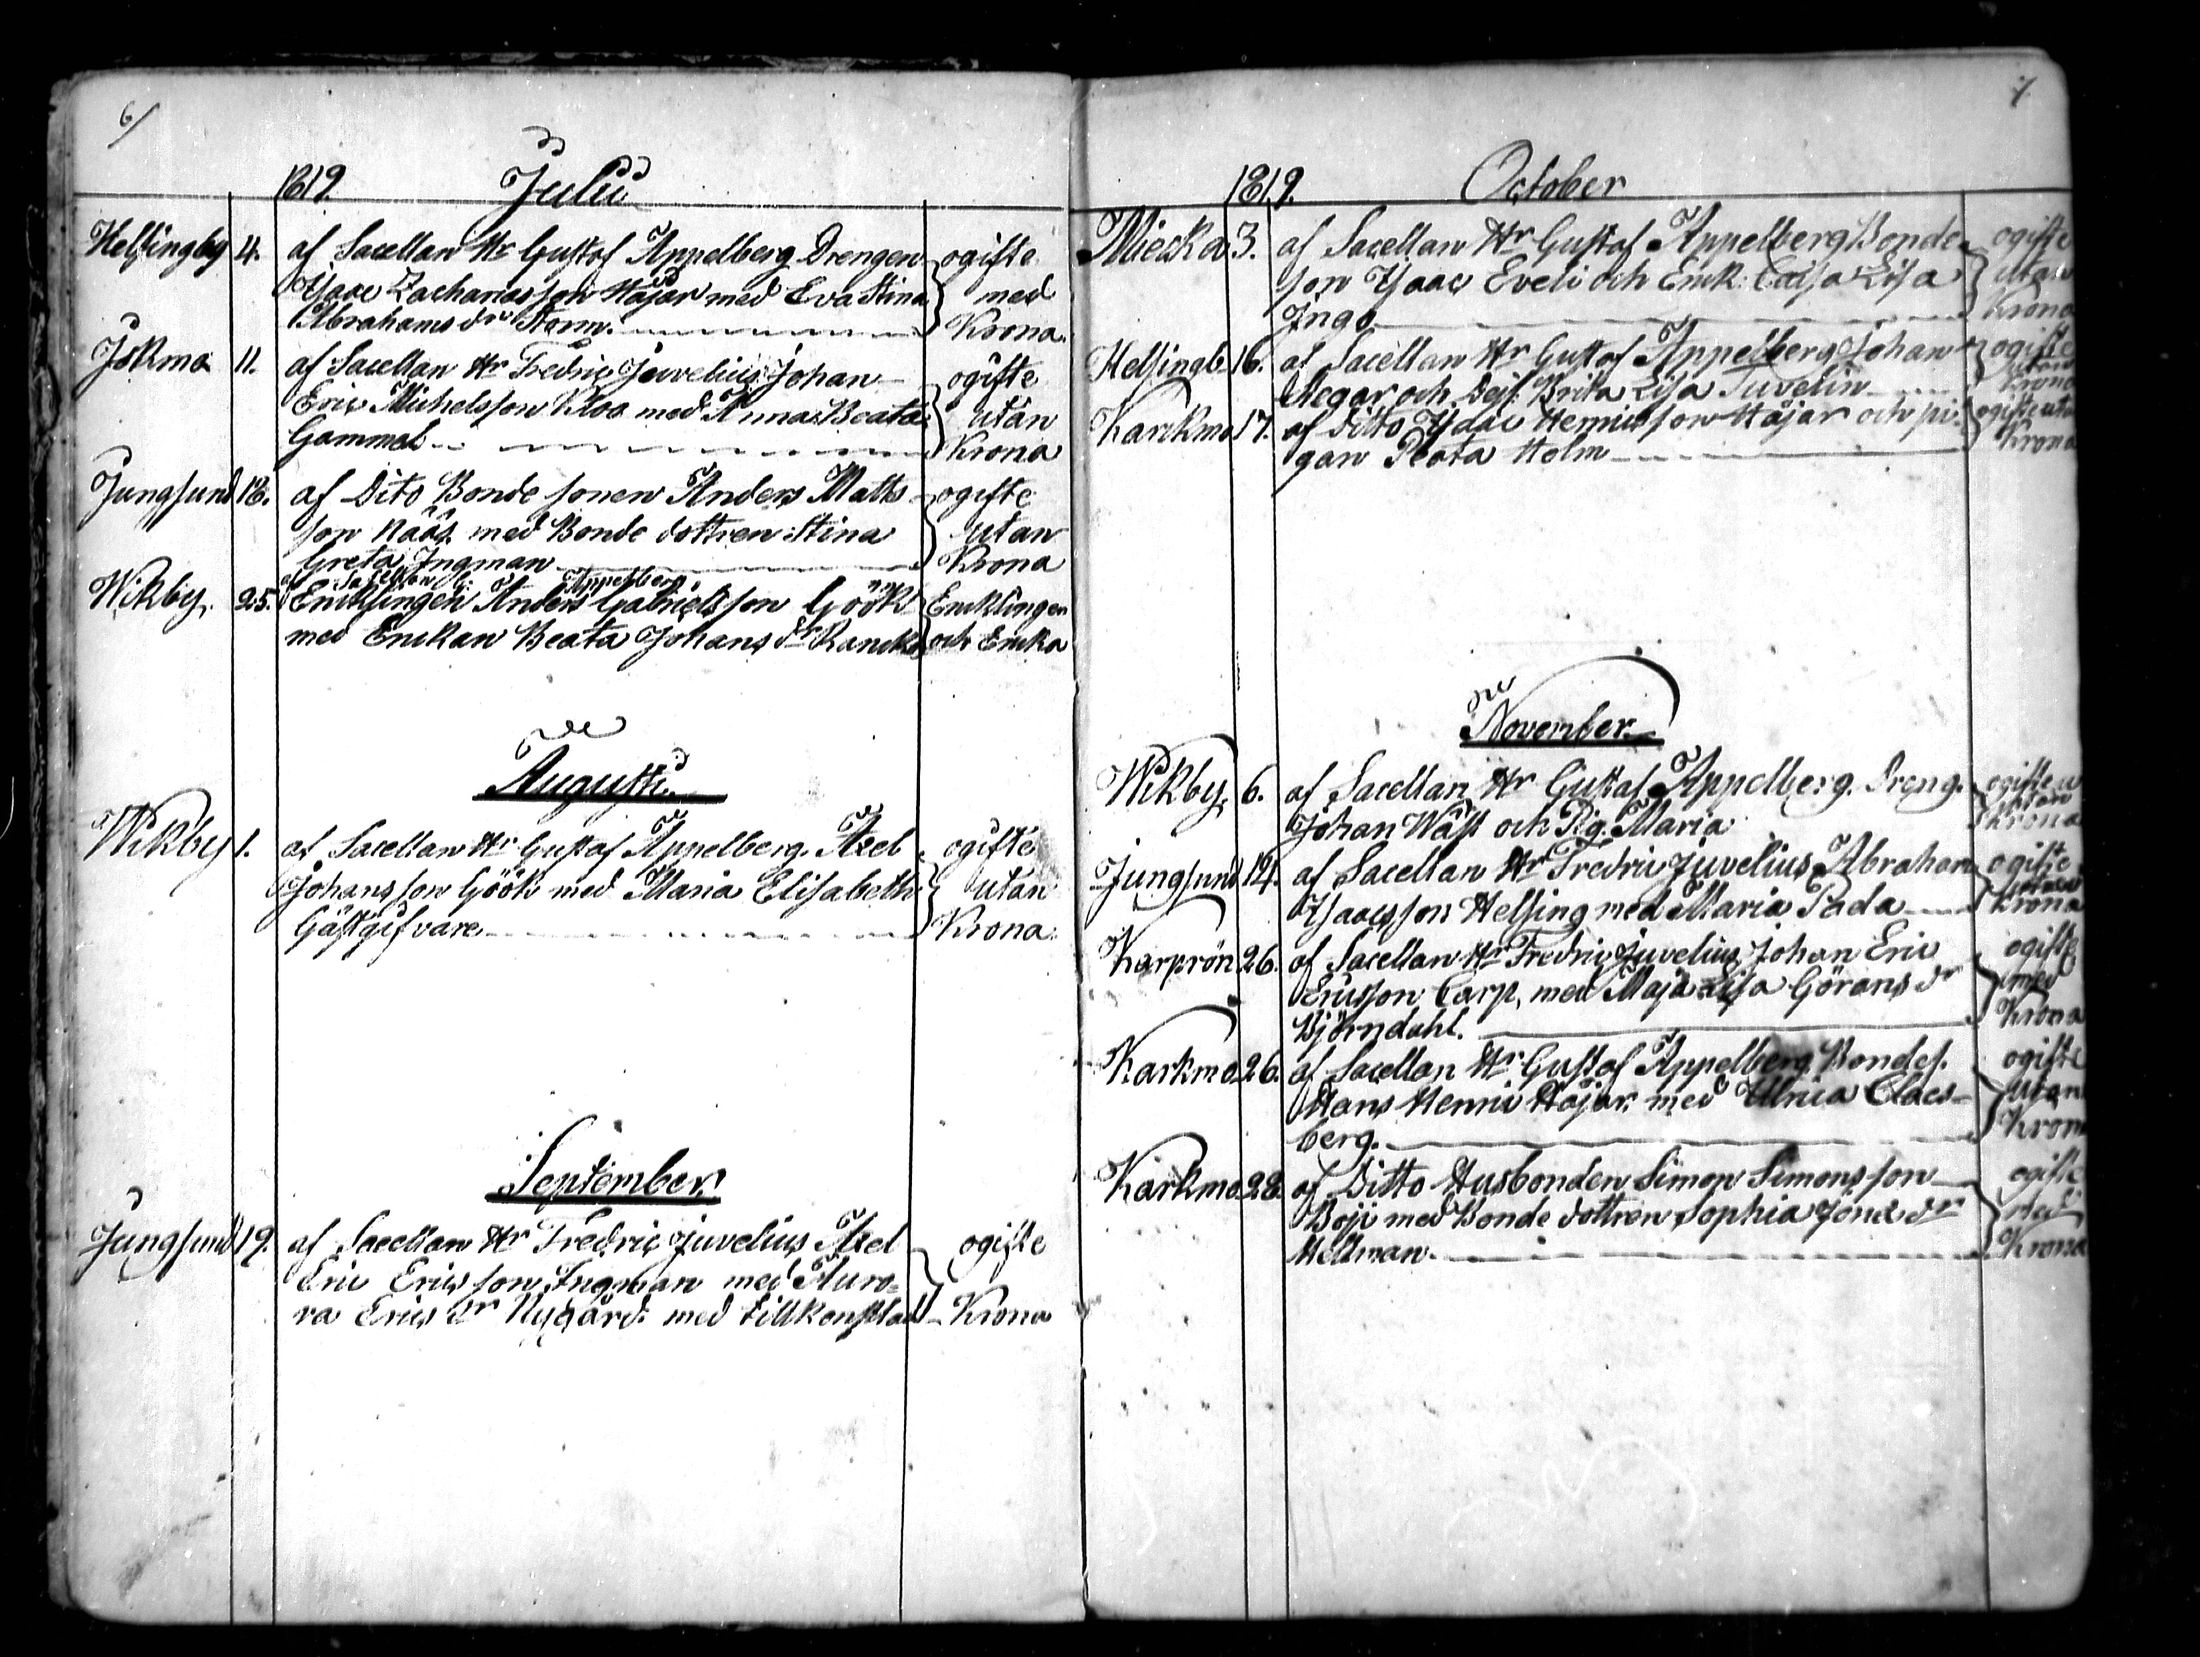 6/
1819. Julii
Helsingby 4. af Sacellan Hr Gustaf Appelberg Drengen ogifte
Isaac Zachariasson Häjar med Eva Stina med
Abrahams dr Storm. Krona.
Jskmo 11. af Sacellan Hr Fredric Juvelius Johan ogifte
Eric Michelsson Kloo med Anna Beata utan
Gammel Krona
Jungsund 18. af Dito Bonde sonen Anders Matts ogifte
son Nääs med Bonde dottren Stina utan
Greta Ingman Krona
af Sacellan G: Appelberg
Wikby. 25. Enklingen Anders Gabrielsson Göök Encklingen
med Enckan Beata Johans dr Ranck och Encka
Augusti
Wikby 1. af Sacellan Hr Gustaf Appelberg. Axel ogifte
Johansson Göök med Maria Elisabeth utan
Gästgifvare Krona.
September
Jungsund 19. af Sacellan Hr Fredric Juvelius Axel ogifte
Eric Ericsson Ingman med Auro=
ra Erics dr Nygård. med tillkonstlad Krona
7
1819. October
Miecka 3. af Sacellan Hr Gustaf Appelberg Bonde ogifte
son Isaac Eveli och Enk: Caisa Lisa utan
Inga Krona
Helsingb 16. af Sacellan Hr Gustaf Appelberg Johan ogifte
Negar och Dejs: Brita Lisa Juvelin utan Krona
Karckmo 17. af Ditto Isaac Henricsson Häjar och pi= ogifte utan
gan Beata Holm Krona
November.
Wikby. 6. af Sacellan Hr Gustaf Appelberg. Dreng. ogifte u
Johan Wäst och Pig. Maria tan Krona
Jungsund 14. af Sacellan Hr Fredric Juvelius Abraham ogifte
Isaacsson Helsing med Maria Pada utan Krona
Karprön 26. af Sacellan Hr Fredric Juvelius Johan Eric ogifte
Ericsson Carp, med Maja Lisa Görans dr med
Björndahl. Krona
Karkmo 26. af Sacellan Hr Gustaf Appelberg Bondes. ogifte
Hans Henric Häjar. med Ulrica Claes= utan
berg. Krona
Karkmo. 28. af Ditto Husbonden Simon Simonsson ogifte
Böji med Bonde dottren Sophia Jons dr med
Hellman. Krona